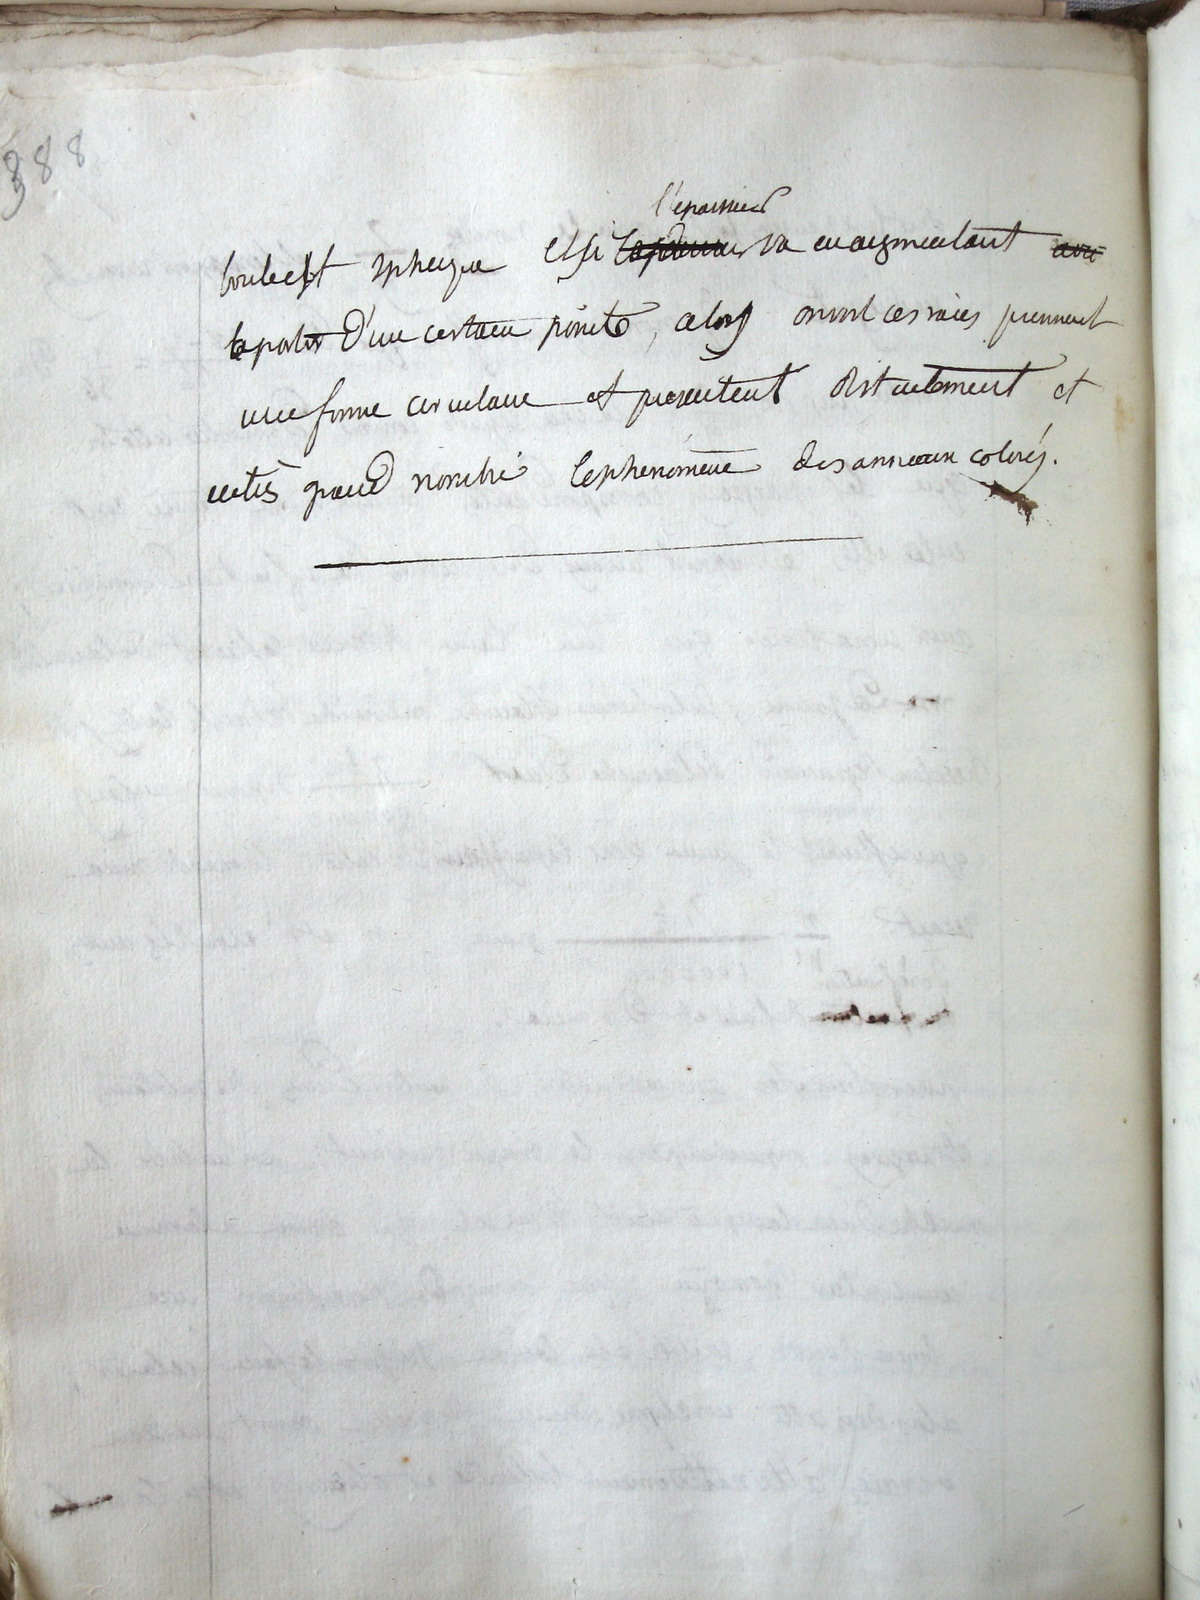 388
l'epaisseur
boule est spherique et si va en augmentant avec
a partir d'une certain points, alors on voit ces raies prennent
une forme circulaire et presentent distinctement et
en très grand nombre le phénomène des anneaux colorés.